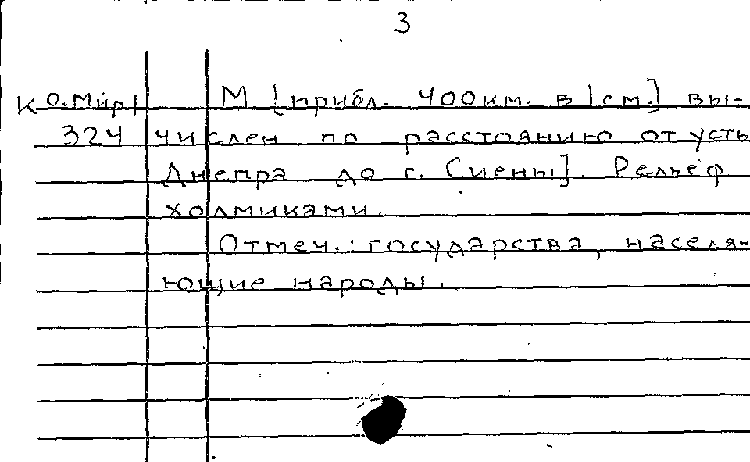 3
К О.Мир М [прибл. 400км. в 1см.] вы-
324 числен по расстоянию от усть
Днепра до г. Сиены]. Рельеф
холмиками.
Отмеч.: государства, населя-
ющие народы.